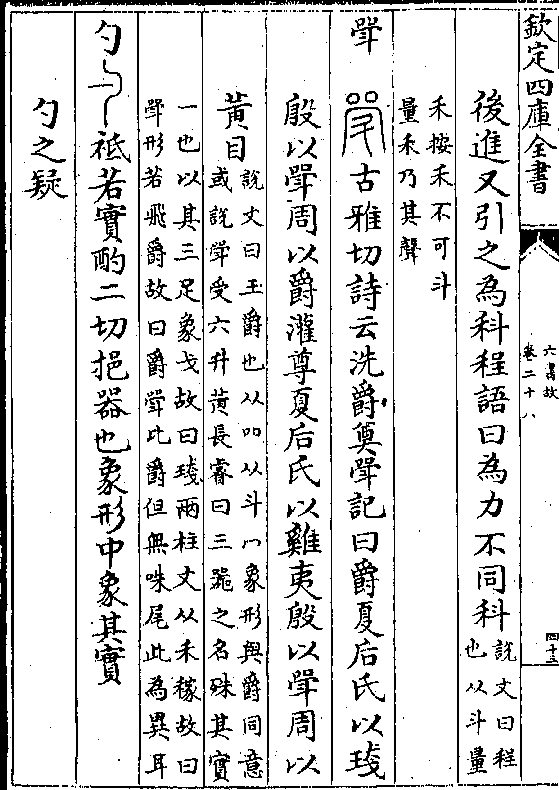 欽定四庫全書
六書故
卷二十八
四十三
後進又引之為科程語曰為力不同科說文曰程
也从斗量
禾按禾不可斗
量禾乃其聲
斝 古雅切詩云洗爵奠斝記曰爵夏后氏以琖
殷以斝周以爵灌尊夏后氏以雞夷殷以斝周以
黃目說文曰玉爵也从吅从斗冂象形與爵同意
或說斝受六升黃長睿曰三疏之名殊其實
一也以其三足象戈故曰琖兩柱文从禾稼故曰
斝形若飛爵故曰爵斝此爵但無咮尾此為異耳
勺 祗若實酌二切挹器也象形中象其實
勺之疑